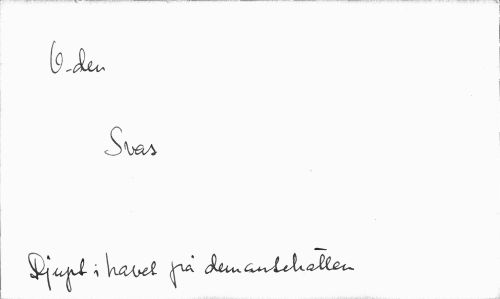 Svas
Djupt i havet på demantehällen